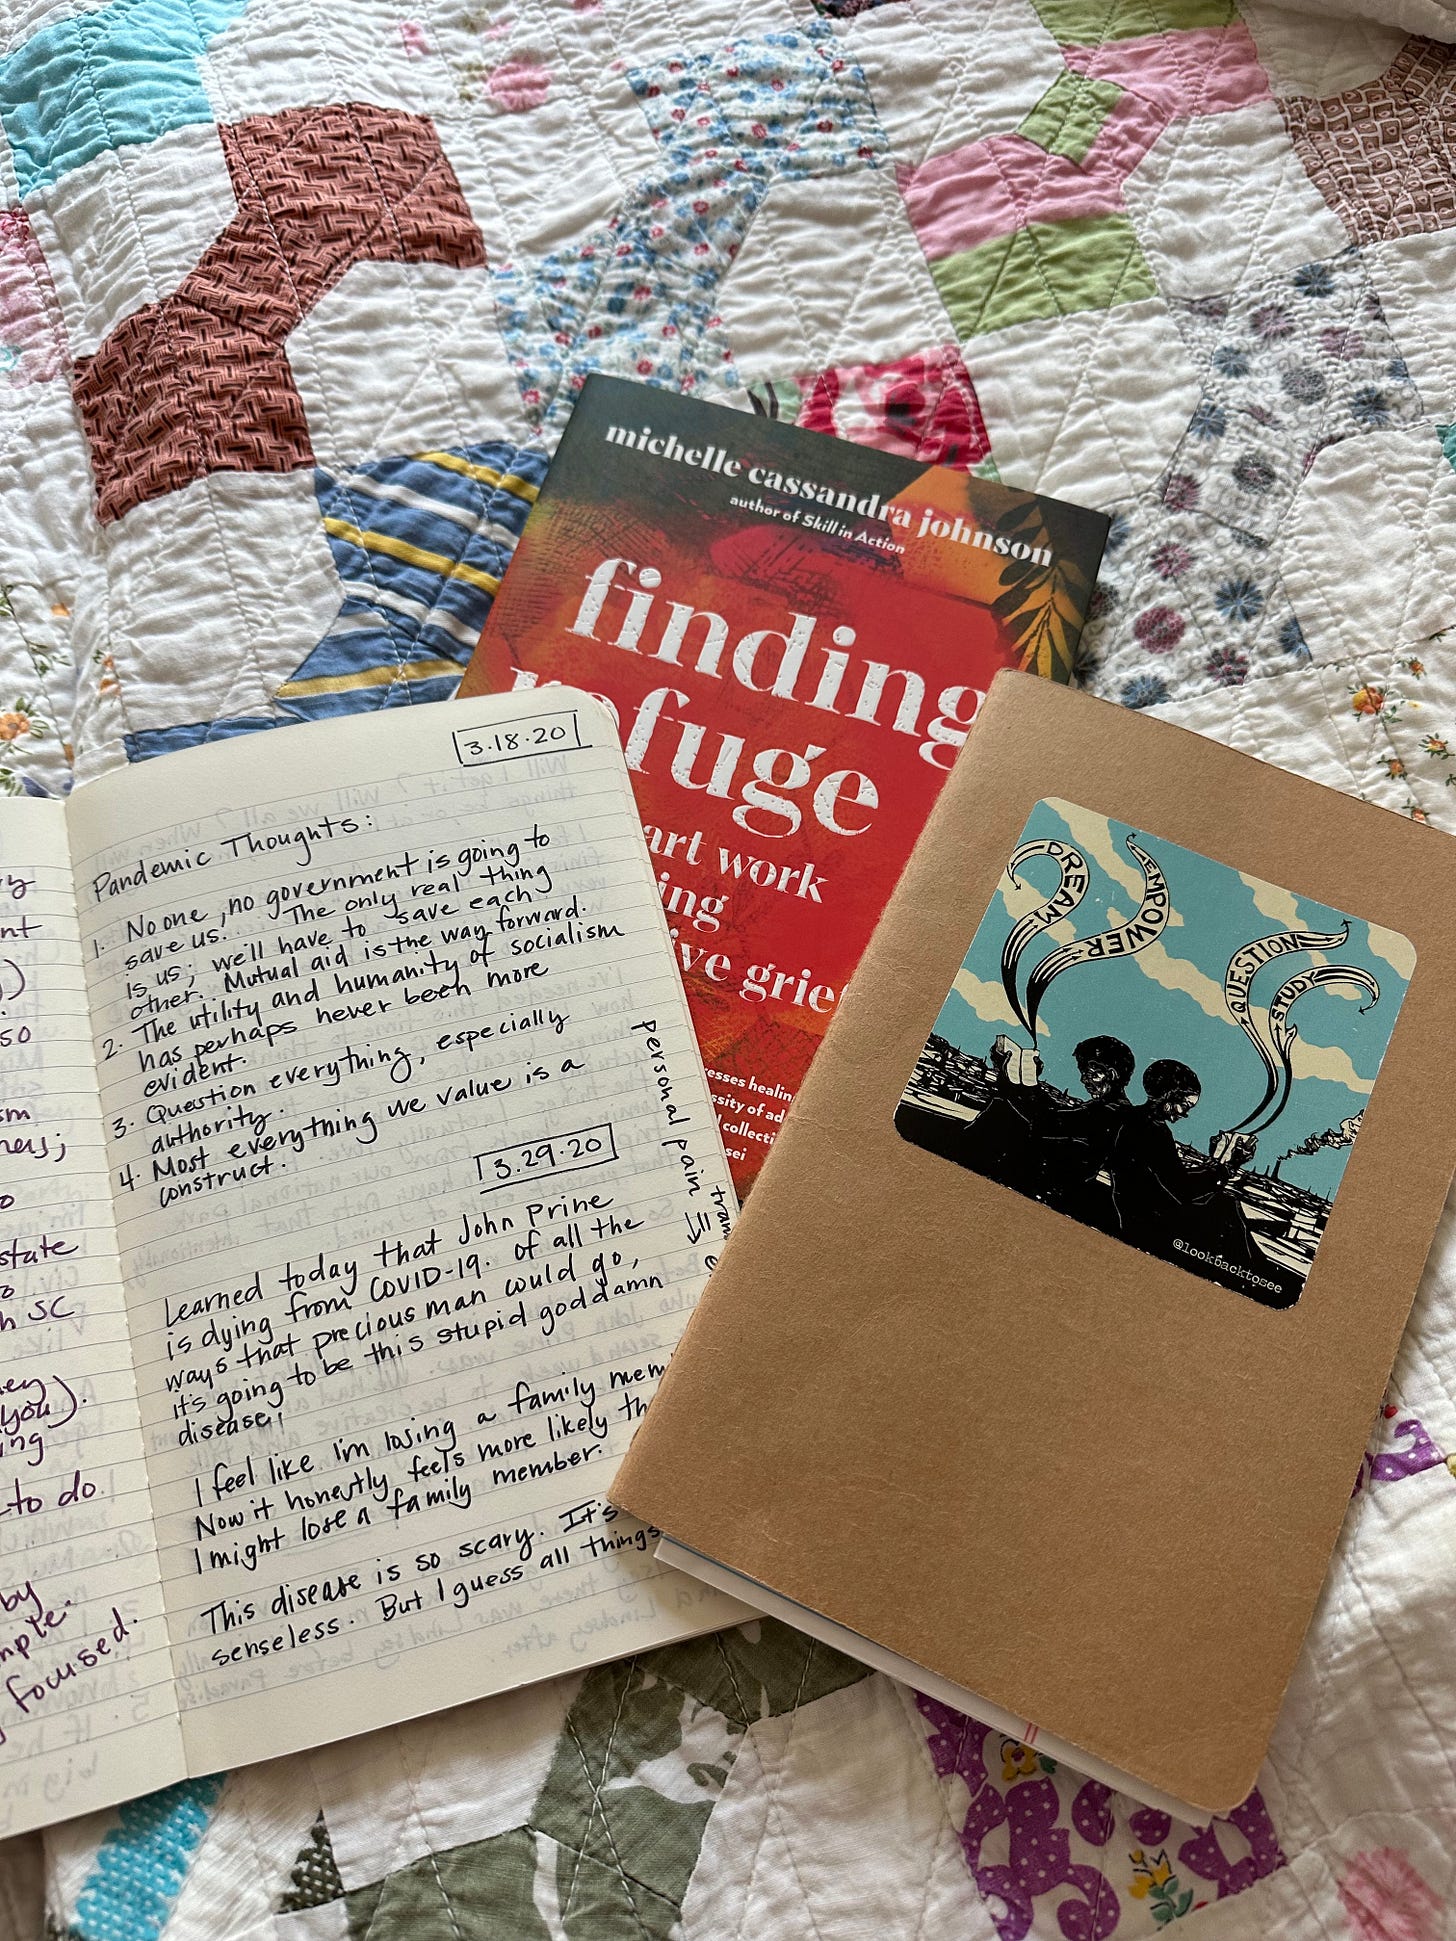 michelle cassandra johnson
author of Skill in Action
finding
refuge
art work
ing
ive grie
esses healin
ssity of ad
l collecti
sei
DREAM
EMPOWER
QUESTION
STUDY
@lookbacktosee
3.18.20
Pandemic Thoughts:
1. No one, no government is going to
save us. The only real thing
is us; we'll have to save each
other. Mutual aid is the way forward.
2. The utility and humanity of socialism
has perhaps never been more
evident.
3. Question everything, especially
authority.
4. Most everything we value is a
construct.
3.29.20
Learned today that John Prine
is dying from COVID-19. Of all the
ways that precious man could go,
it's going to be this stupid goddamn
disease!
I feel like I'm losing a family mem
Now it honestly feels more likely th
I might lose a family member.
This disease is so scary. It's
senseless. But I guess all things
personal pain ⇒
tran
nt
)
so
sm
ness;
o
state
h SC
ney
you).
ing
to do.
by
mple.
focused.